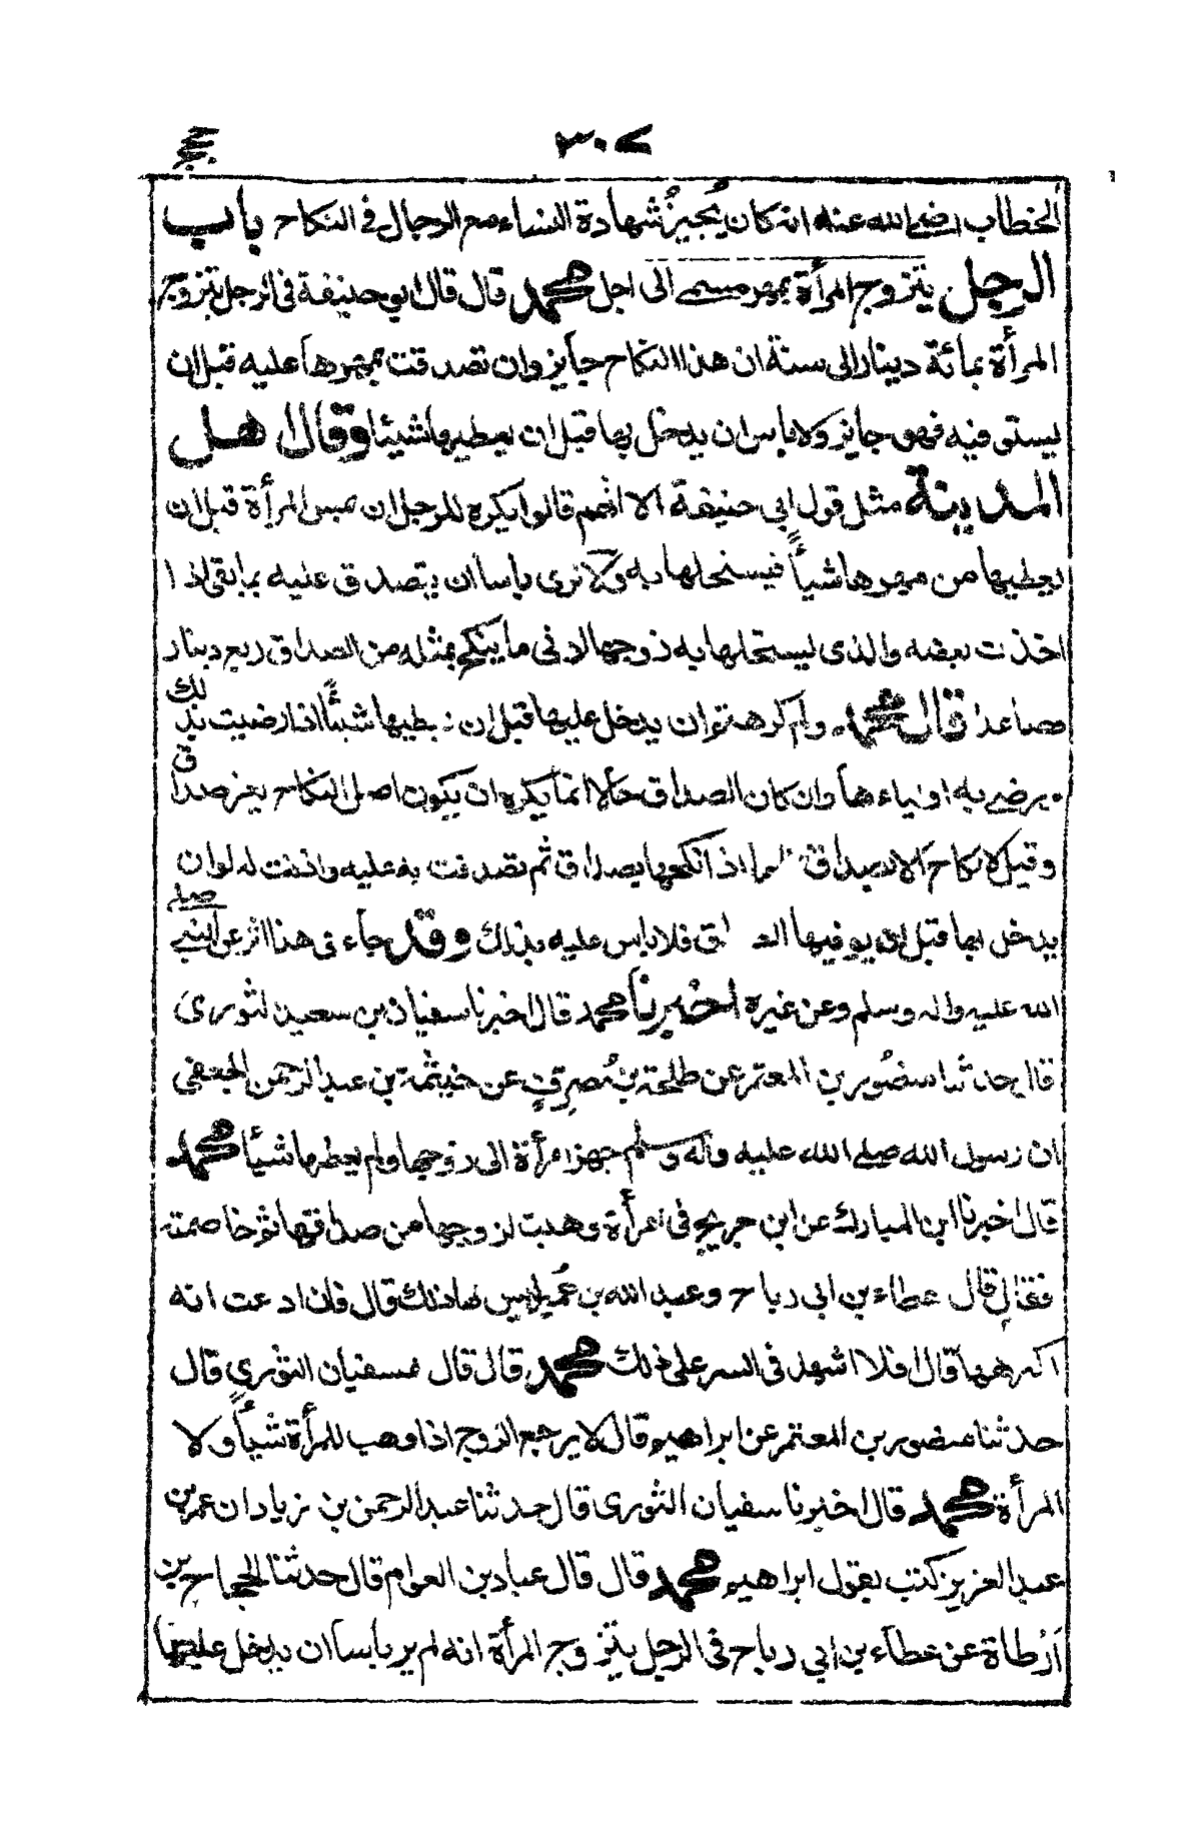 ٣٠٧
الخطاب رضي الله عنه انه كان يُجيزُ شهادة النساء مع الرجال في النكاح باب
الرجل يتزوج امرأة بمهر مسمى الى اجل محمد قال قال ابو حنيفة في الرجل يتزوج
المرأة بمائة دينار الى سنة ان هذا النكاح جايز وان تصدقت بمهرها عليه قبل ان
يستوفيه فهو جايز ولا باس ان يدخل بها قبل ان يعطيها شيئا وقال اهل
المدينة مثل قول ابي حنيفة الا انهم قالوا يكره للرجل ان يمس المرأة قبل ان
يعطيها من مهرها شيأً فيستحلها به ولا نرى باسا ان يتصدق عليه بما بقى اذا
اخذت بعضه والذى يستحلها به زوجها ادنى ما ينكح بمثله من الصداق ربع دينار
فصاعدا قال محمد ولم كرهتم ان يدخل عليها قبل ان يعطيها شيئًا اذا رضيت بذلك
ويرضى به اولياءها وان كان الصداق حالا انما يكره ان يكون اصل النكاح بغير صداق
وقيل لا نكاح الا بصداق فاما اذا انكحها بصداق ثم تصدقت به عليه واذنت له لو ان
يدخل بها قبل ان يوفيها الصداق فلا باس عليه بذلك وقد جاء في هذا اثر عن النبي صلى
الله عليه واله وسلم وعن غيره اخبرنا محمد قال اخبرنا سفيان بن سعيد الثورى
قال حدثنا منصور بن المعتمر عن طلحة بن مُصرِّف عن خيثمة بن عبد الرحمن الجعفي
ان رسول الله صلى الله عليه وآله وسلم جهز امرأة الى زوجها ولم يعطها شيئا محمد
قال اخبرنا ابن المبارك عن ابن جريج في امرأة وهبت لزوجها من صداقها ثم خاصمته
فقال قال عطاء بن ابي رباح وعبد الله بن عُمير ليس لها ذلك قال فان ادعت انه
اكرهها قال فلا اشهد في السر على ذلك محمد قال قال سفيان الثوري قال
حدثنا منصور بن المعتمر عن ابراهيم قال لا يرجع الزوج اذا وهب للمرأة شيأً ولا
المرأة محمد قال اخبرنا سفيان الثورى قال حدثنا عبد الرحمن بن زياد ان عمر بن
عبد العزيز كتب بقول ابراهيم محمد قال قال عباد بن العوام قال حدثنا الحجاج بن
أرطاة عن عطاء بن ابي رباح في الرجل يتزوج المرأة انه لم ير بأسا ان يدخل عليها